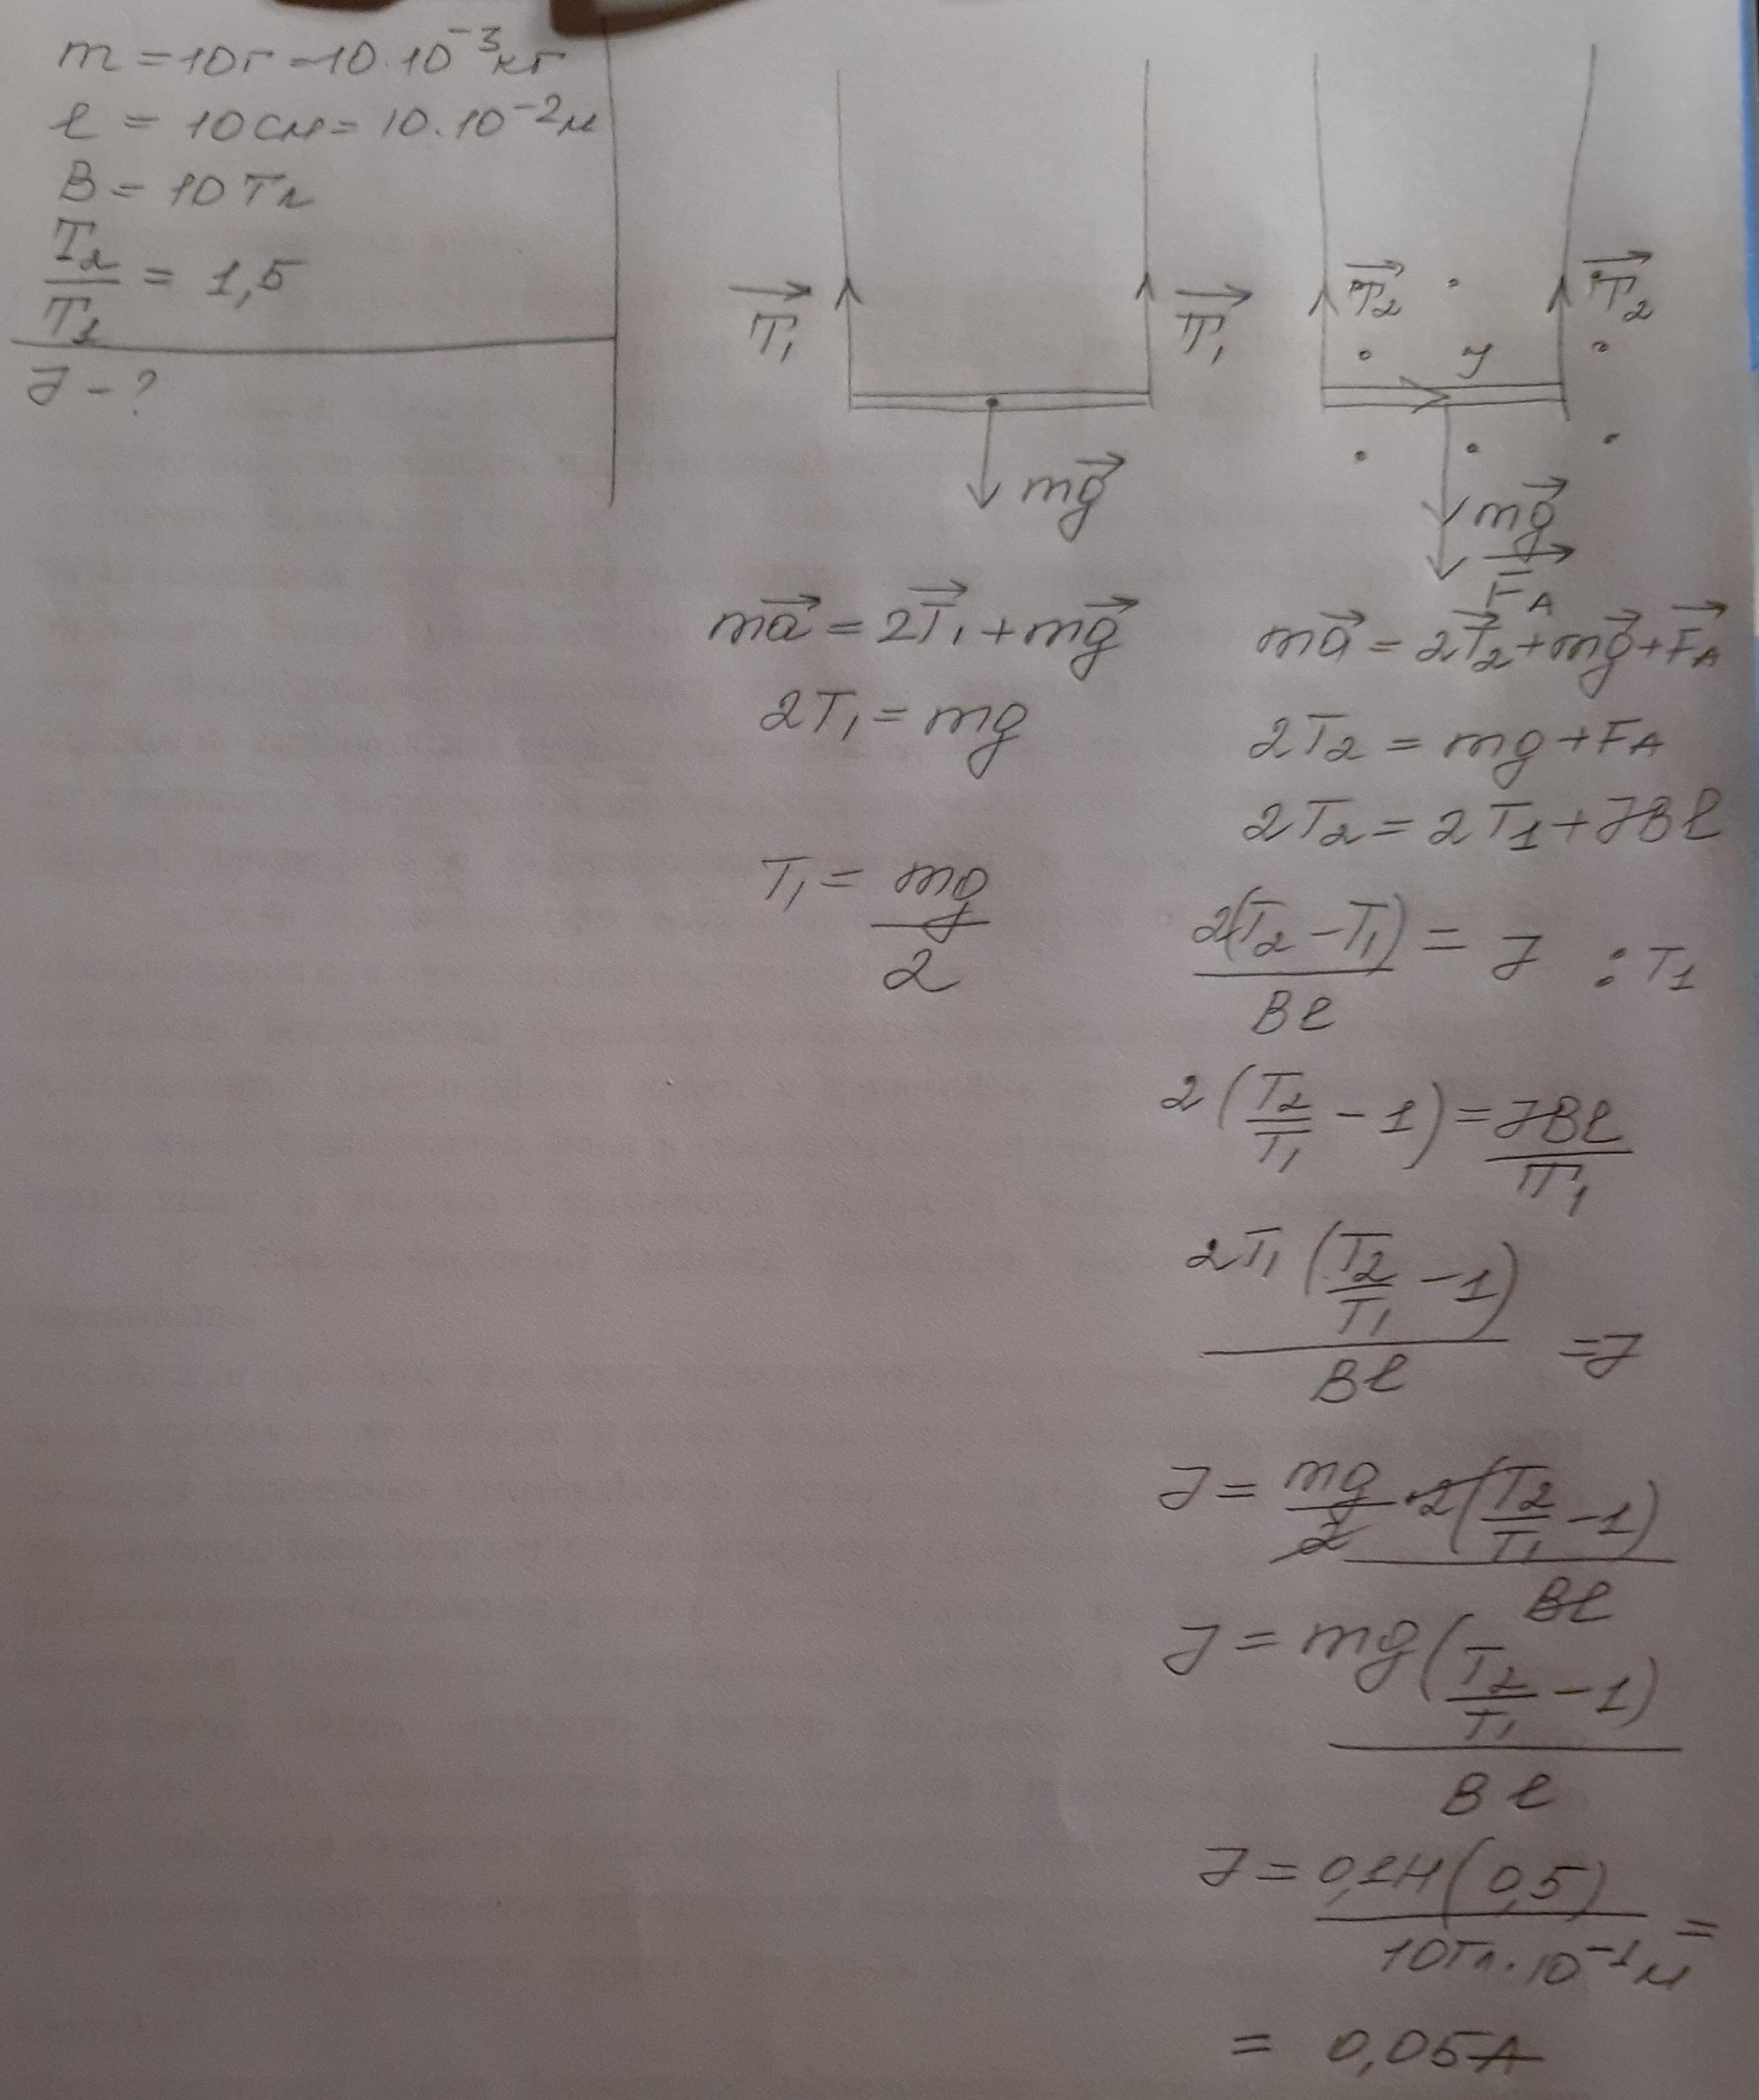 m = 10г = 10·10⁻³кг
ℓ = 10см = 10·10⁻²м
B = 10 Тл
T₂/T₁ = 1,5
J - ?
T₁ T₁
mg
T₂ T₂
J
mg
F_A
ma = 2T₁ + mg
2T₁ = mg
T₁ = mg/2
ma = 2T₂ + mg + F_A
2T₂ = mg + F_A
2T₂ = 2T₁ + JBℓ
2(T₂ - T₁)/Bℓ = J : T₁
2(T₂/T₁ - 1) = JBℓ/T₁
2T₁(T₂/T₁ - 1)/Bℓ = J
J = mg/2 · 2(T₂/T₁ - 1)/Bℓ
J = mg(T₂/T₁ - 1)/Bℓ
J = 0,1Н(0,5)/10Тл·10⁻¹м =
= 0,05А